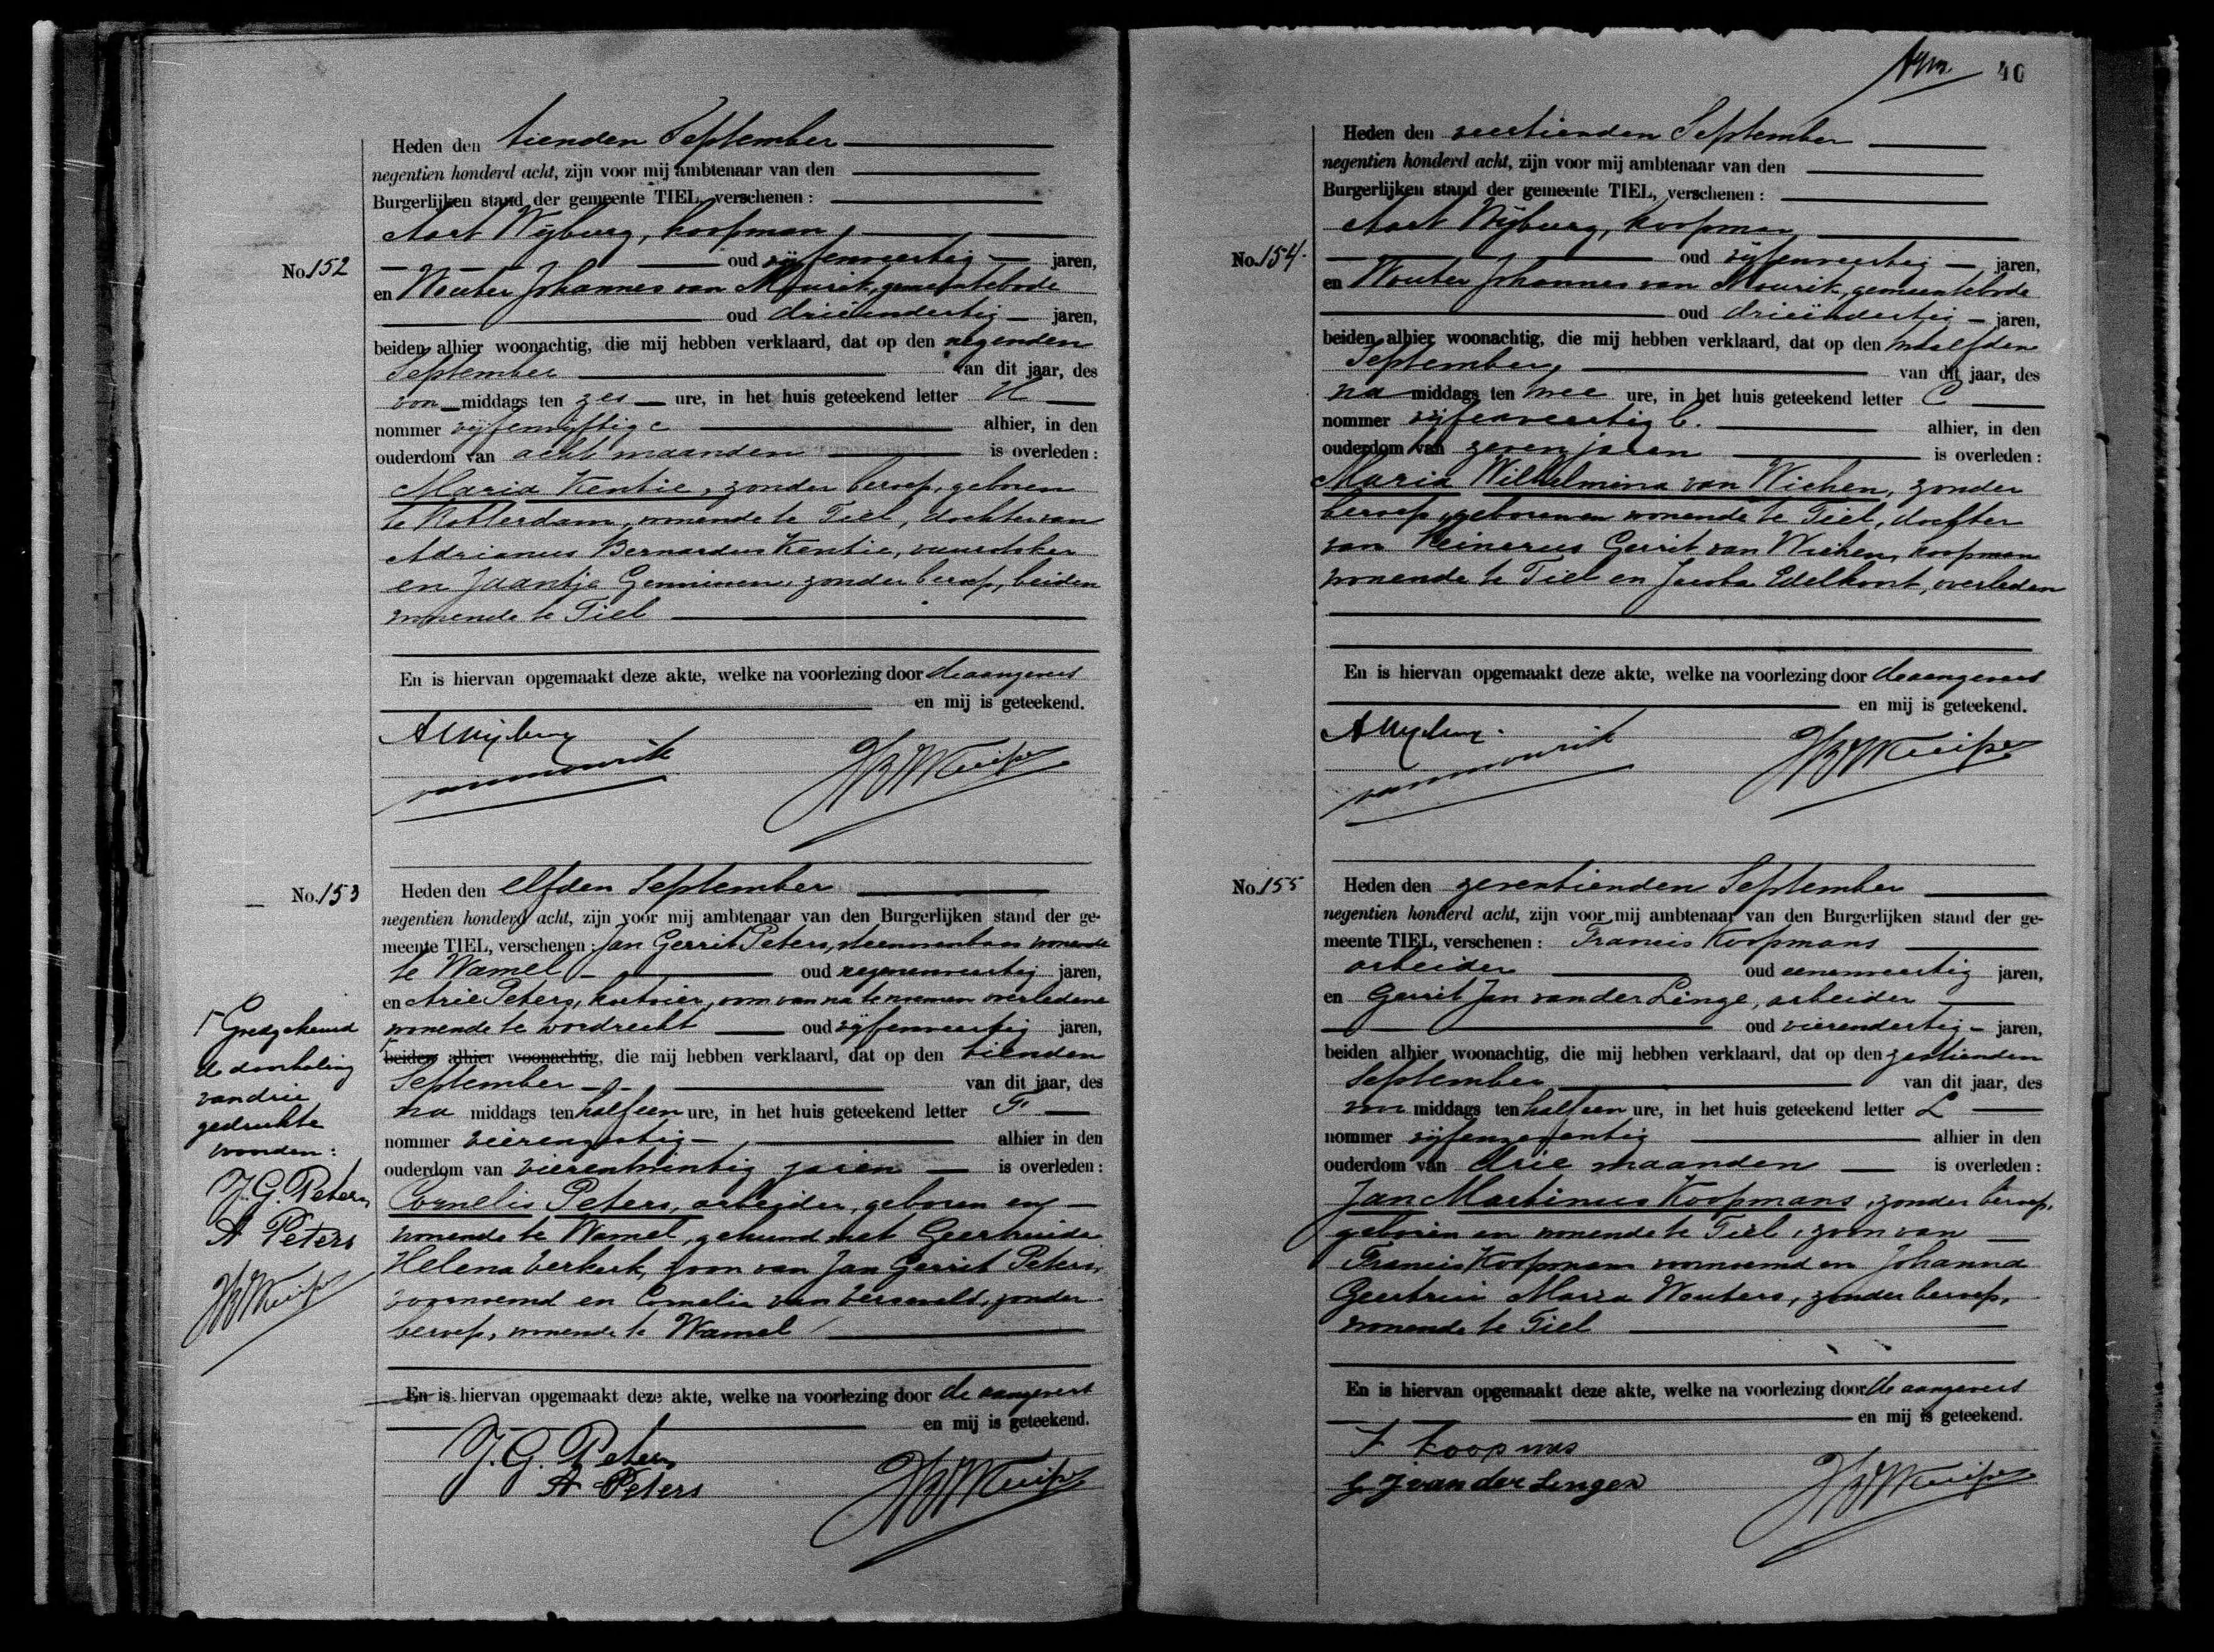 No. 152
Heden den tienden September
negentien honderd acht, zijn voor mij ambtenaar van den
Burgerlijken stand der gemeente TIEL, verschenen:
Aart Wijburg, koopman,
oud vijfenveertig jaren,
en Wouter Johannes van Mourik, gemeentebode
oud drieëndertig jaren,
beiden alhier woonachtig, die mij hebben verklaard, dat op den negenden
September van dit jaar, des
voor middags ten zes ure, in het huis geteekend letter H
nommer vijfenvijftig c alhier, in den
ouderdom van acht maanden is overleden:
Maria Kentie, zonder beroep, geboren
te Rotterdam, wonende te Tiel, dochter van
Adrianus Bernardus Kentie,
en Jaantje zonder beroep, beiden
wonende te Tiel
En is hiervan opgemaakt deze akte, welke na voorlezing door de aangevers
en mij is geteekend.
A Wijburg
van mourik
No. 153
Heden den elfden September
negentien honderd acht, zijn voor mij ambtenaar van den Burgerlijken stand der ge-
meente TIEL, verschenen: Jan Gerrit Peters, wonende
te Wamel oud negenenveertig jaren,
en Arie Peters, oom van na te noemen overledene
wonende te Dordrecht oud vijfenveertig jaren,
beiden alhier woonachtig, die mij hebben verklaard, dat op den tienden
September van dit jaar, des
na middags ten half een ure, in het huis geteekend letter F
nommer vierenzestig alhier in den
ouderdom van vierentwintig jaren is overleden:
Cornelis Peters, arbeider, geboren en
wonende te Wamel, gehuwd met Geertruida
Helena Verkerk, zoon van Jan Gerrit Peters,
voornoemd en Cornelia van zonder
beroep, wonende te Wamel
En is hiervan opgemaakt deze akte, welke na voorlezing door de aangevers
en mij is geteekend.
J. G. Peters
A Peters
Goedgekeurd
de doorhaling
van drie
gedrukte
woorden:
J. G. Peters
A Peters
40
No. 154.
Heden den veertienden September
negentien honderd acht, zijn voor mij ambtenaar van den
Burgerlijken stand der gemeente TIEL, verschenen:
Aart Wijburg, koopman
oud vijfenveertig jaren,
en Wouter Johannes van Mourik, gemeentebode
oud drieëndertig jaren,
beiden alhier woonachtig, die mij hebben verklaard, dat op den twaalfden
September, van dit jaar, des
na middags ten twee ure, in het huis geteekend letter C
nommer vijfenveertig b. alhier, in den
ouderdom van zeven jaren is overleden:
Maria Wilhelmina van Wichen, zonder
beroep, geboren en wonende te Tiel, dochter
van Reinerus Gerrit van Wichen, koopman
wonende te Tiel en Jacoba Edelhont, overleden
En is hiervan opgemaakt deze akte, welke na voorlezing door de aangevers
en mij is geteekend.
A Wijburg.
van mourik
No. 155
Heden den zeventienden September
negentien honderd acht, zijn voor mij ambtenaar van den Burgerlijken stand der ge-
meente TIEL, verschenen: Francis Koopmans
arbeider oud eenenveertig jaren,
en Gerrit Jan van der Linge, arbeider
oud vierendertig jaren,
beiden alhier woonachtig, die mij hebben verklaard, dat op den zestienden
September van dit jaar, des
voor middags ten half een ure, in het huis geteekend letter L
nommer vijfenzeventig alhier in den
ouderdom van drie maanden is overleden:
Jan Martinus Koopmans, zonder beroep,
geboren en wonende te Tiel, zoon van
Francis Koopmans voornoemd en Johanna
Geertrui Maria Wouters, zonder beroep,
wonende te Tiel
En is hiervan opgemaakt deze akte, welke na voorlezing door de aangevers
en mij is geteekend.
F Koopmans
G J van der Lingen